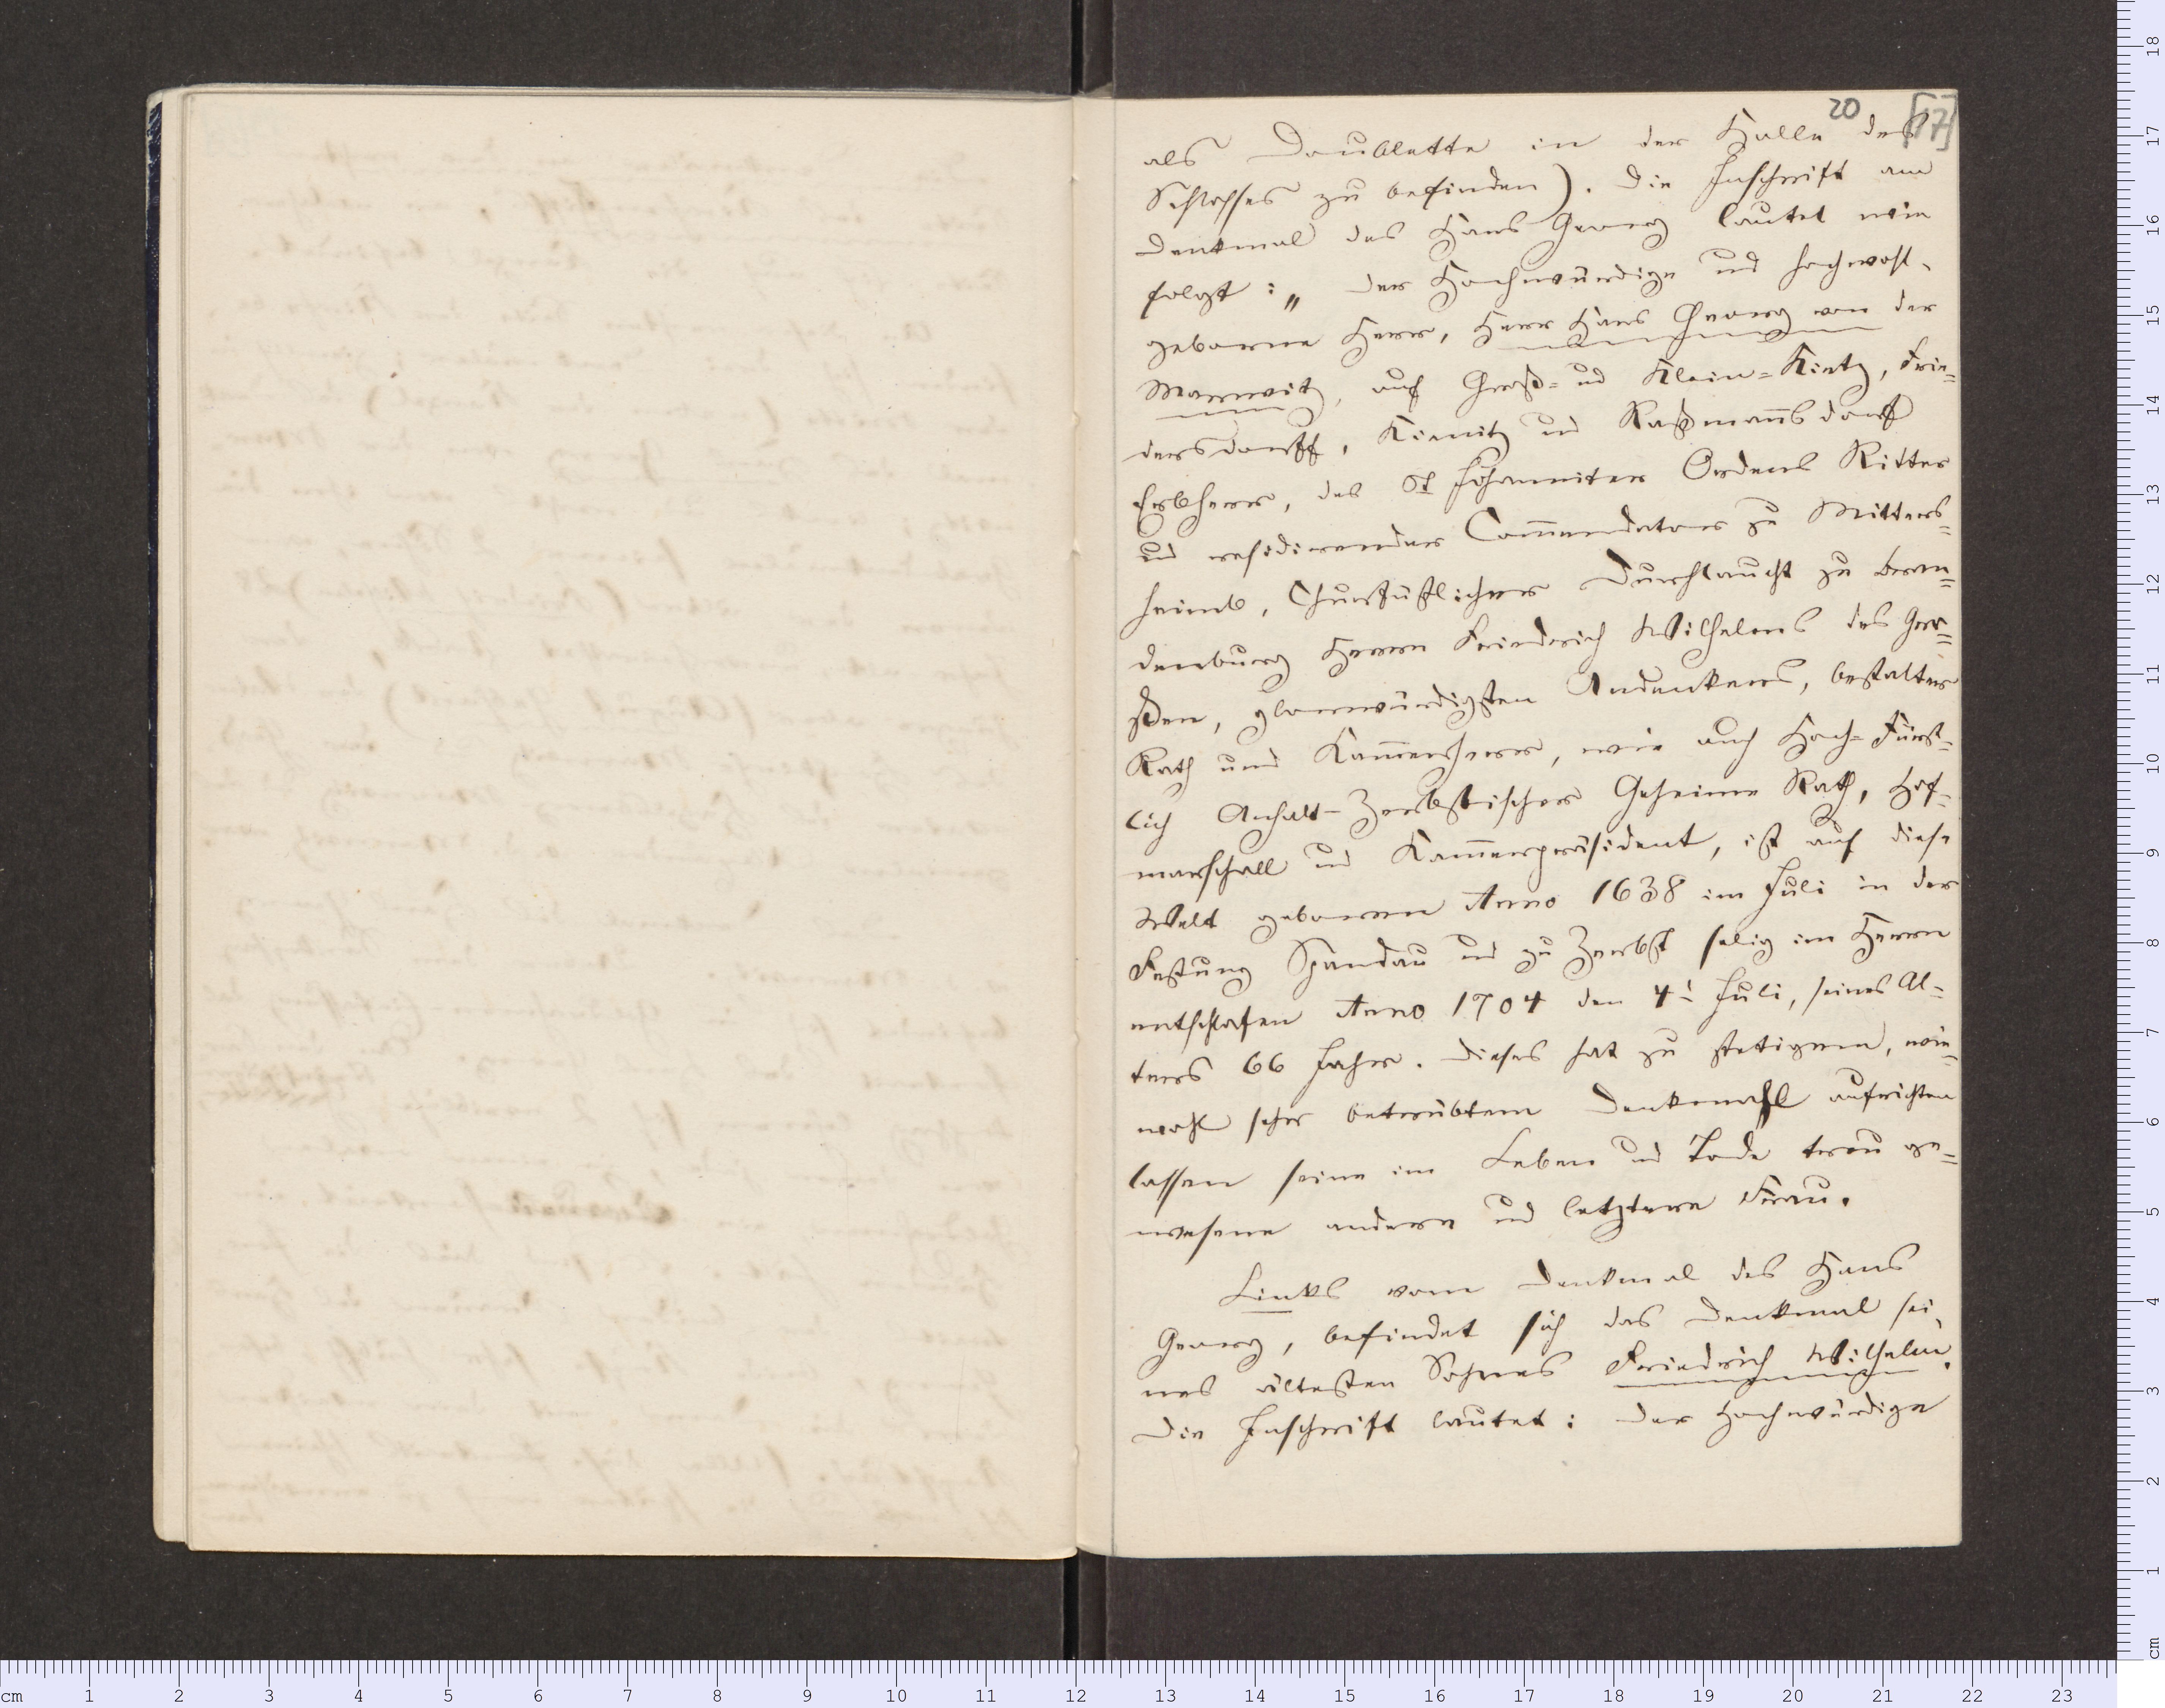 20 [17]
als Doublette in der Halle des
Schlosses zu befinden). Die Inschrift am
Denkmal des Hans Georg lautet wie
folgt: „ Der Hochwürdige und hochwohl-
geborne Herr, Herr Hans Georg von der
Marwitz, auf Groß- und Klein-Rietz, Frie-
dersdorff, Kienitz und Raßmannsdorf
Erbherr, des St Johanniter Ordens Ritter
und residirender Commendator zu Mitters-
heimb, Churfüstlicher Durchlaucht zu Bran-
denburg Herrn Friederich Wilhelms des Gro-
ßen, glorwürdigsten Andenkens, bestalter
Rath und Kammerherr, wie auch Hoch-Fürst-
lich Anhalt-Zerbstischer Geheime Rath, Hof-
marschall und Kammerpräsident, ist auf diese
Welt geboren Anno 1638 im Juli in der
Festung Spandau und zu Zerbst selig im Herrn
entschlafen Anno 1704 den 4t Juli, seines Al-
ters 66 Jahr. Dieses hat zu stetigem, wie-
wohl sehr betrübtem Denkmahl aufrichten
lassen seine im Leben und Tode treu ge-
wesene andere und letztere Frau.
Links vom Denkmal des Hans
Georg, befindet sich das Denkmal sei-
nes ältesten Sohnes Friedrich Wilhelm.
Die Inschrift lautet: Der Hochwürdige
cm 1 2 3 4 5 6 7 8 9 10 11 12 13 14 15 16 17 18 19 20 21 22 23
cm 1 2 3 4 5 6 7 8 9 10 11 12 13 14 15 16 17 18